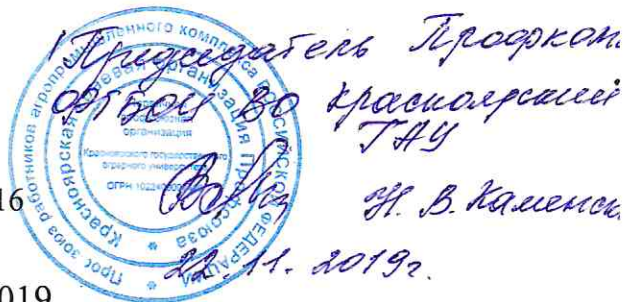 Председатель Профком
ФГБОУ ВО Красноярский
ГАУ
16
Н. В. Каменск
22.11.2019г.
019
Профсоюз работников агропромышленного комплекса Российской Федерации
Красноярская краевая организация Профсоюза
организация
Красноярского государственного
аграрного университета
ОГРН